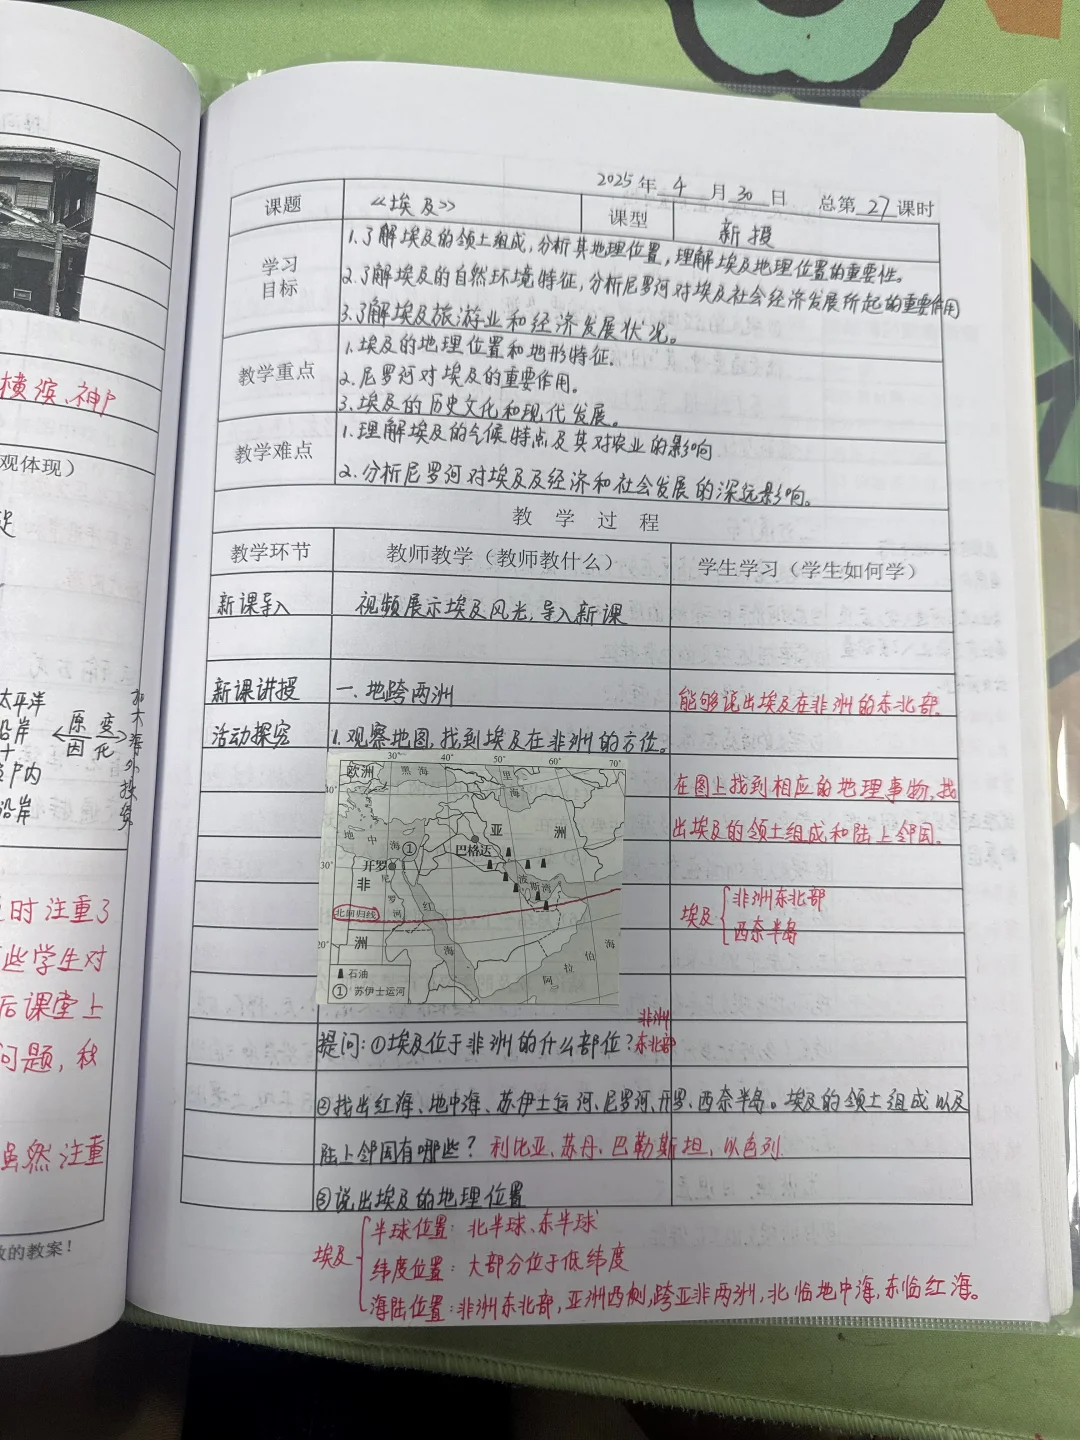 横滨、神户
观体现）
太平洋
沿岸
原 变
因 化
户内
沿岸
时注重了
些学生对
后课堂上
问题，
虽然注重
的教案！
2025年 4 月 30 日 总第 27 课时
课题 《埃及》 课型 新授
学习目标
1.了解埃及的领土组成，分析其地理位置，理解埃及地理位置的重要性。
2.了解埃及的自然环境特征，分析尼罗河对埃及社会经济发展所起的重要作用
3.了解埃及旅游业和经济发展状况。
教学重点
1.埃及的地理位置和地形特征.
2.尼罗河对埃及的重要作用。
3.埃及的历史文化和现代发展。
教学难点
1.理解埃及的气候特点及其对农业的影响
2.分析尼罗河对埃及及经济和社会发展的深远影响。
教 学 过 程
教学环节 教师教学（教师教什么） 学生学习（学生如何学）
新课导入 视频展示埃及风光，导入新课
新课讲授 一.地跨两洲 能够说出埃及在非洲的东北部.
活动探究 1.观察地图，找到埃及在非洲的方位。
在图上找到相应的地理事物，找
出埃及的领土组成和陆上邻国。
埃及 非洲东北部
西奈半岛
30° 40° 50° 60° 70°
欧洲 黑海 里海
40°
亚 洲
地 中 海 ① 巴格达
30° 开罗
非 尼罗河 波斯湾
北回归线 红
20° 洲 海 阿 拉 伯 海
石油
① 苏伊士运河
提问:①埃及位于非洲的什么部位？非洲东北部
②找出红海、地中海、苏伊士运河、尼罗河、开罗、西奈半岛。埃及的领土组成以及
陆上邻国有哪些？利比亚、苏丹、巴勒斯坦，以色列
③说出埃及的地理位置
埃及
半球位置：北半球、东半球
纬度位置：大部分位于低纬度
海陆位置：非洲东北部，亚洲西侧，跨亚非两洲，北临地中海，东临红海。